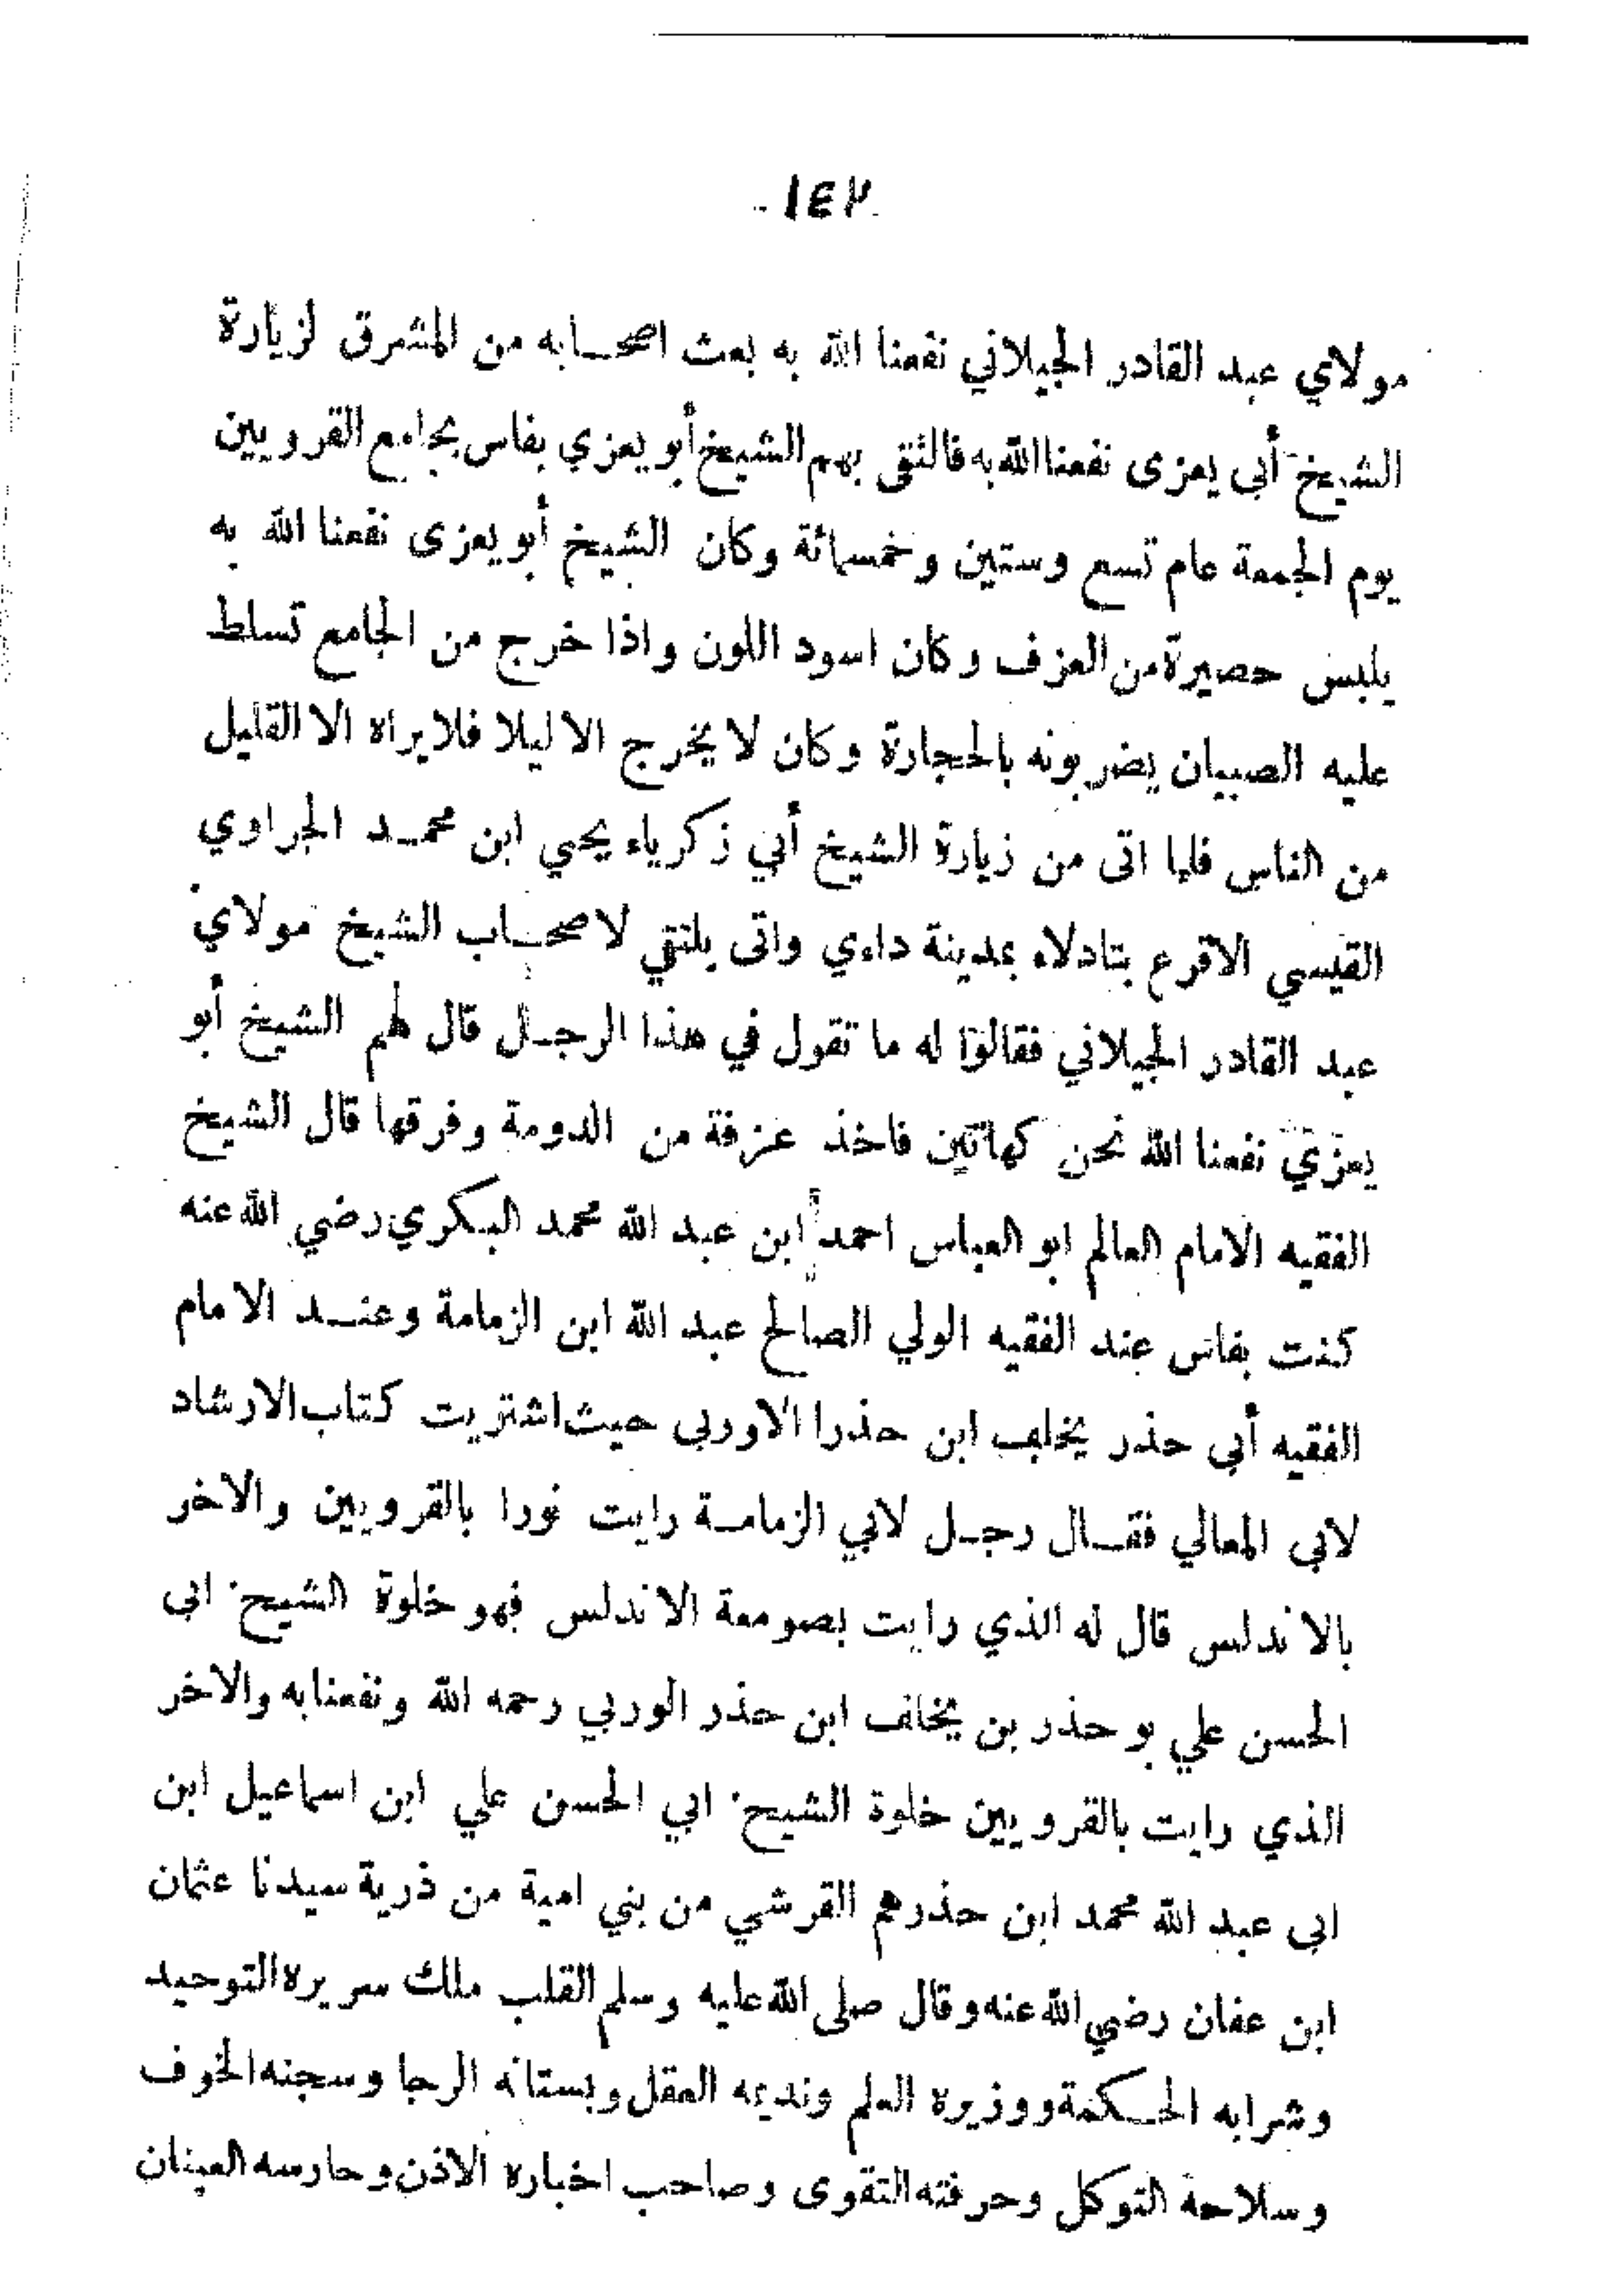 - ١٤٣ -
مولاي عبد القادر الجيلاني نفعنا الله به بعث اصحابه من المشرق لزيارة
الشيخ أبي يعزى نفعنا الله به فالتقى بهم الشيخ أبو يعزي بفاس بجامع القرويين
يوم الجمعة عام تسع وستين وخمسمائة وكان الشيخ أبو يعزى نفعنا الله به
يلبس حصيرة من العزف وكان اسود اللون واذا خرج من الجامع تسلط
عليه الصبيان يضربونه بالحجارة وكان لا يخرج الا ليلا فلا يراه الا القليل
من الناس فلما اتى من زيارة الشيخ أبي زكرياء يحيي ابن محمد الجراوي
القيسي الاقرع بتادلاء بمدينة داءي واتى يلتقي لاصحاب الشيخ مولاي
عبد القادر الجيلاني فقالوا له ما تقول في هذا الرجل قال لهم الشيخ أبو
يعزي نفعنا الله نحن كهاتين فاخذ عزفة من الدومة وفرقها قال الشيخ
الفقيه الامام العالم ابو العباس احمد ابن عبد الله محمد البكري رضي الله عنه
كنت بفاس عند الفقيه الولي الصالح عبد الله ابن الزمامة وعند الامام
الفقيه أبي حذر يخلف ابن حذرا الاوربي حيث اشتريت كتاب الارشاد
لابي المعالي فقال رجل لابي الزمامة رايت نورا بالقرويين والاخر
بالاندلس قال له الذي رايت بصومعة الاندلس فهو خلوة الشيخ ابي
الحسن علي بو حذر بن يخلف ابن حذر الوربي رحمه الله ونفعنا به والاخر
الذي رايت بالقرويين خلوة الشيخ ابي الحسن علي ابن اسماعيل ابن
ابي عبد الله محمد ابن حذرهم القرشي من بني امية من ذرية سيدنا عثمان
ابن عفان رضي الله عنه وقال صلى الله عليه وسلم القلب ملك سريره التوحيد
وشرابه الحكمة ووزيره العلم ونديمه العقل وبستانه الرجا وسجنه الخوف
وسلاحة التوكل وحرفته التقوى وصاحب اخباره الاذن وحارسه العينان